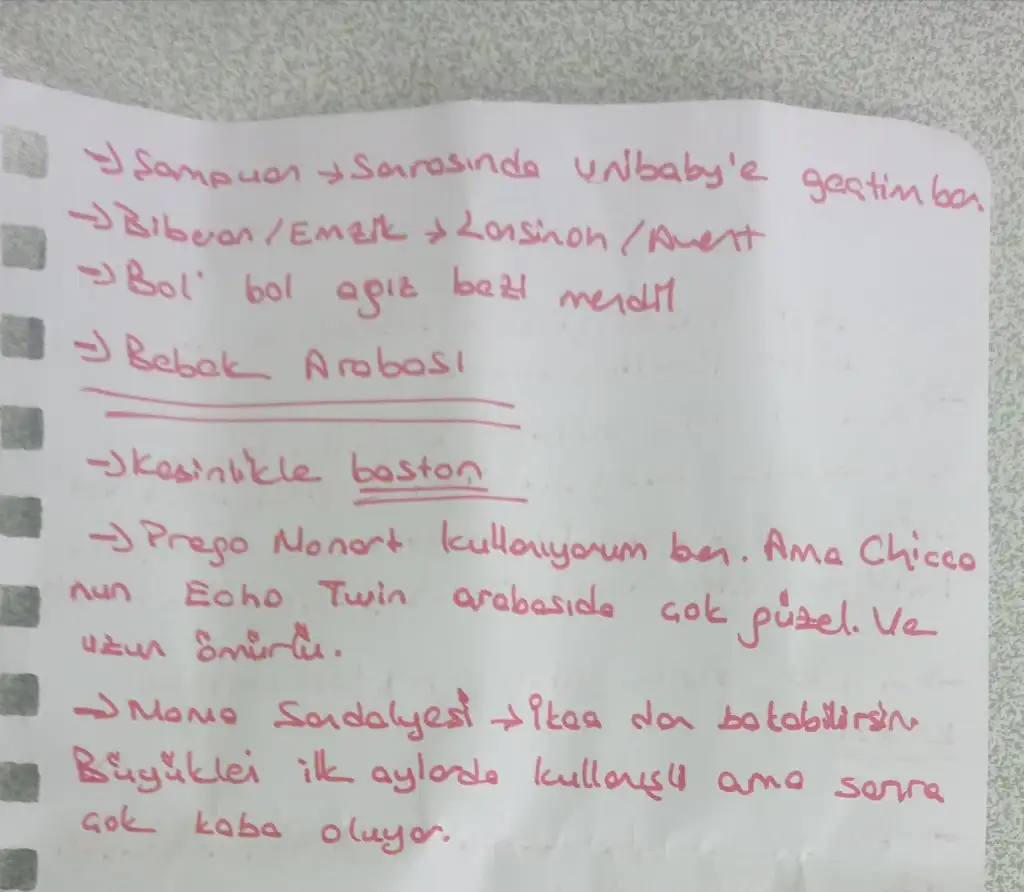 → Sampuan → Sonrasında Unibaby'e geçtim ben.
→ Biberon / Emzik → Lansinoh / Avent
→ Bol bol ağız bezi mendil
→ Bebek Arabası
→ Kesinlikle baston
→ Prego Monart kullanıyorum ben. Ama Chicco
nun Echo Twin arabasıda çok güzel. Ve
uzun ömürlü.
→ Mama Sandalyesi → İkea dan bakabilirsin
Büyüklei ilk aylarda kullanışlı ama sonra
çok kaba oluyor.